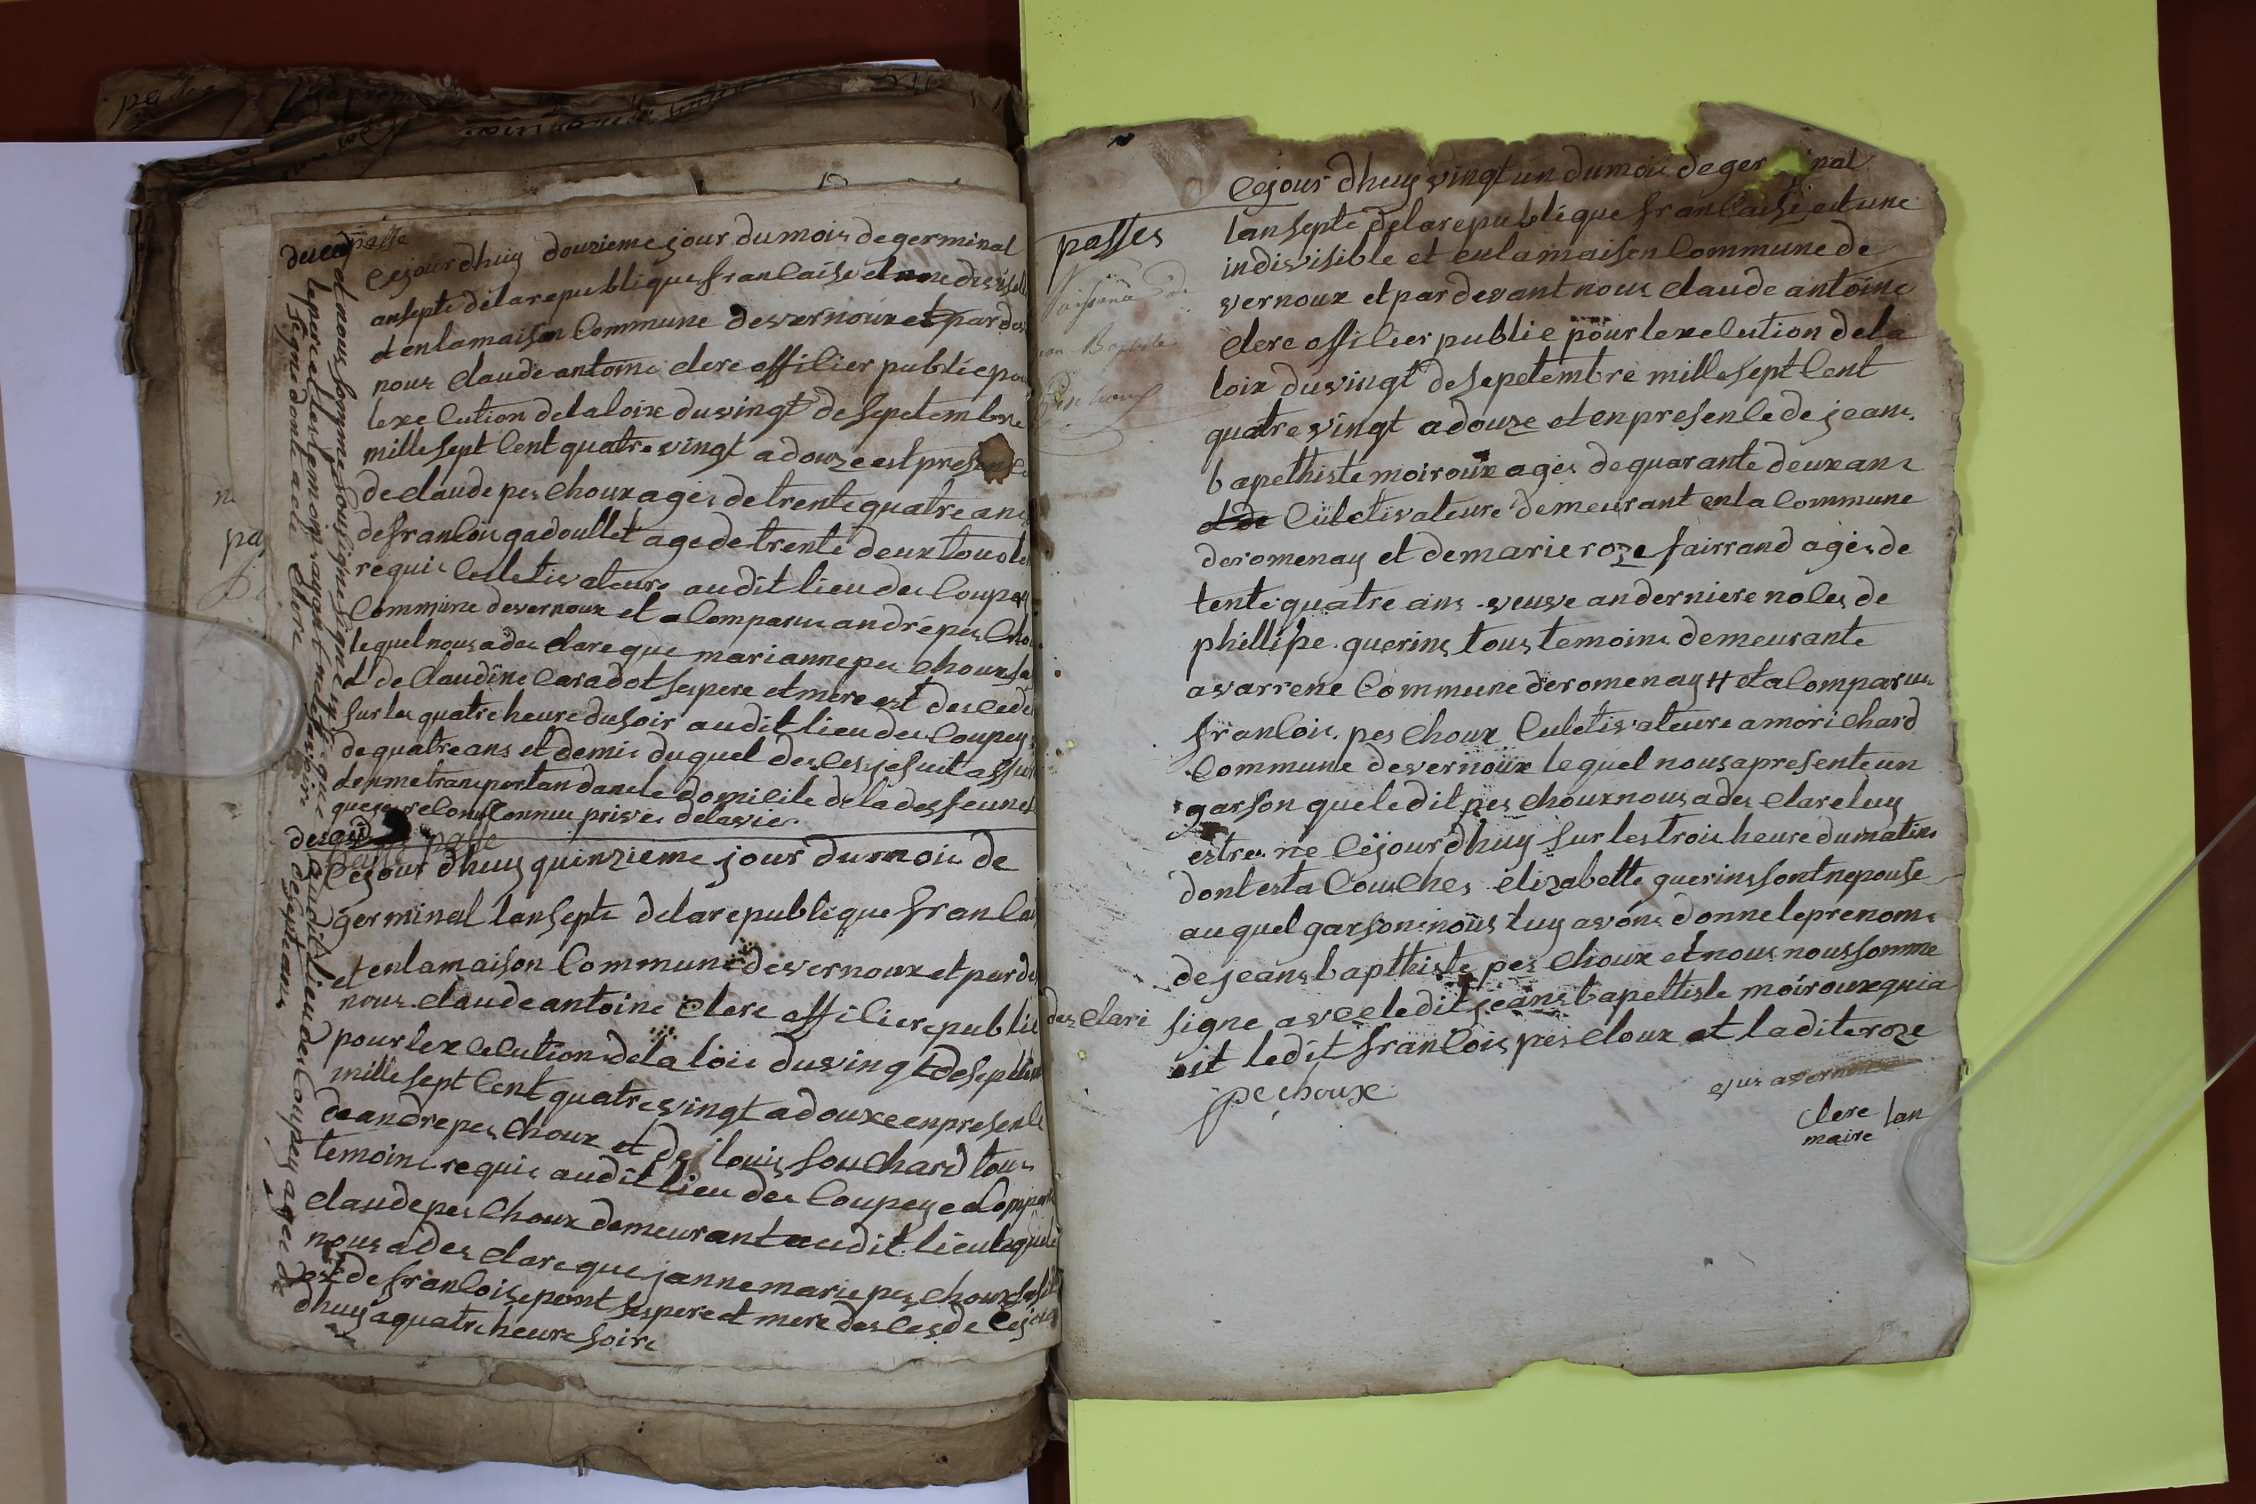 passe
deced
Cejourdhuy douzieme jour du mois de germinal
ansepte delarepublique francaise et
et enlamaison Commune devernoux et pardev
nous claude antoine clerc offilier publicpou
lexelution delaloix duvingt desepetembre
mille sept Cent quatre vingt adouze est presence
declaude pes Choux ages detrente quatre ans
defrancois gadoullet age detrente deux tous
requis Culetivateure audit lieu des Coupey
Commune devernoux et a Comparue andré pes Chou
lequel nous a des clare que marianne pes choux
et de Claudine Caradot sespere et mere est decede
sur les quatre heure du soir audit lieu des Coupey
de quatre ans et demie duquel desces jesuit assur
denmetransportan dansle domicile deladesfeunct
que jes reConuConnue privés delavie
et nous somme Sousigne
lepere et les temoins ayant
signe dont acte Clerc
deced
passe
Cejour dhuy quinzieme jour dumois de
germinal lansepte delarepublique francai
et enlamaison Commune devernoux et pardev
nous claude antoine clerc offilier public
pourlexelution delaloix duvingt desepetem
mille sept Cent quatre vingt adouxe enpresence
de andre pes Choux et de louis souchard tous
temoins requis audit lieu des Coupey e Compar
claude pes Choux demeurant audit lieu lequel
nous a des clare que janne marie pes choux
et de francoise pont sespere et mere des cesde cejour
dhuy a quatre heure soire
audit lieu des Coupey agee de
desept ans
passes
naissance de
jean Baptiste
Pechoux
Cejour dhuy vingt un dumois de ger nal
lansepte delarepublique francaise et une
indivisible et enlamaison Commune de
vernoux et pardevant nous claude antoine
clerc offilier public pour lexelution dela
loix duvingt desepetembre mille sept Cent
quatre vingt adouze et enpresence de jean
bapethiste moiroux ages dequarante deux ans
et de Culetivateure demeurant enla Commune
deromenay et demarie roze fairrand ages de
tente quatre ans veuve anderniere noles de
phillipe guerins tous temoins demeurante
avarrene Commune deromenay et a Comparue
francois pes Choux Culetivateure amorichard
Commune devernoux lequel nous apresente un
garson que ledit pes Choux nous a des clare luy
estre ne Cejourdhuy sur les trois heure dumatin
dont esta Couches elizabette guerins sont nepouse
auquel garson nous luy avons donne leprenom
dejeans bapthiste pes Choux et nous nous somme
signe avec ledit jeans bapettiste moiroux quia
des clari
sit ledit francois pes Cloux et ladite roze
pechoux
Clerc
maire